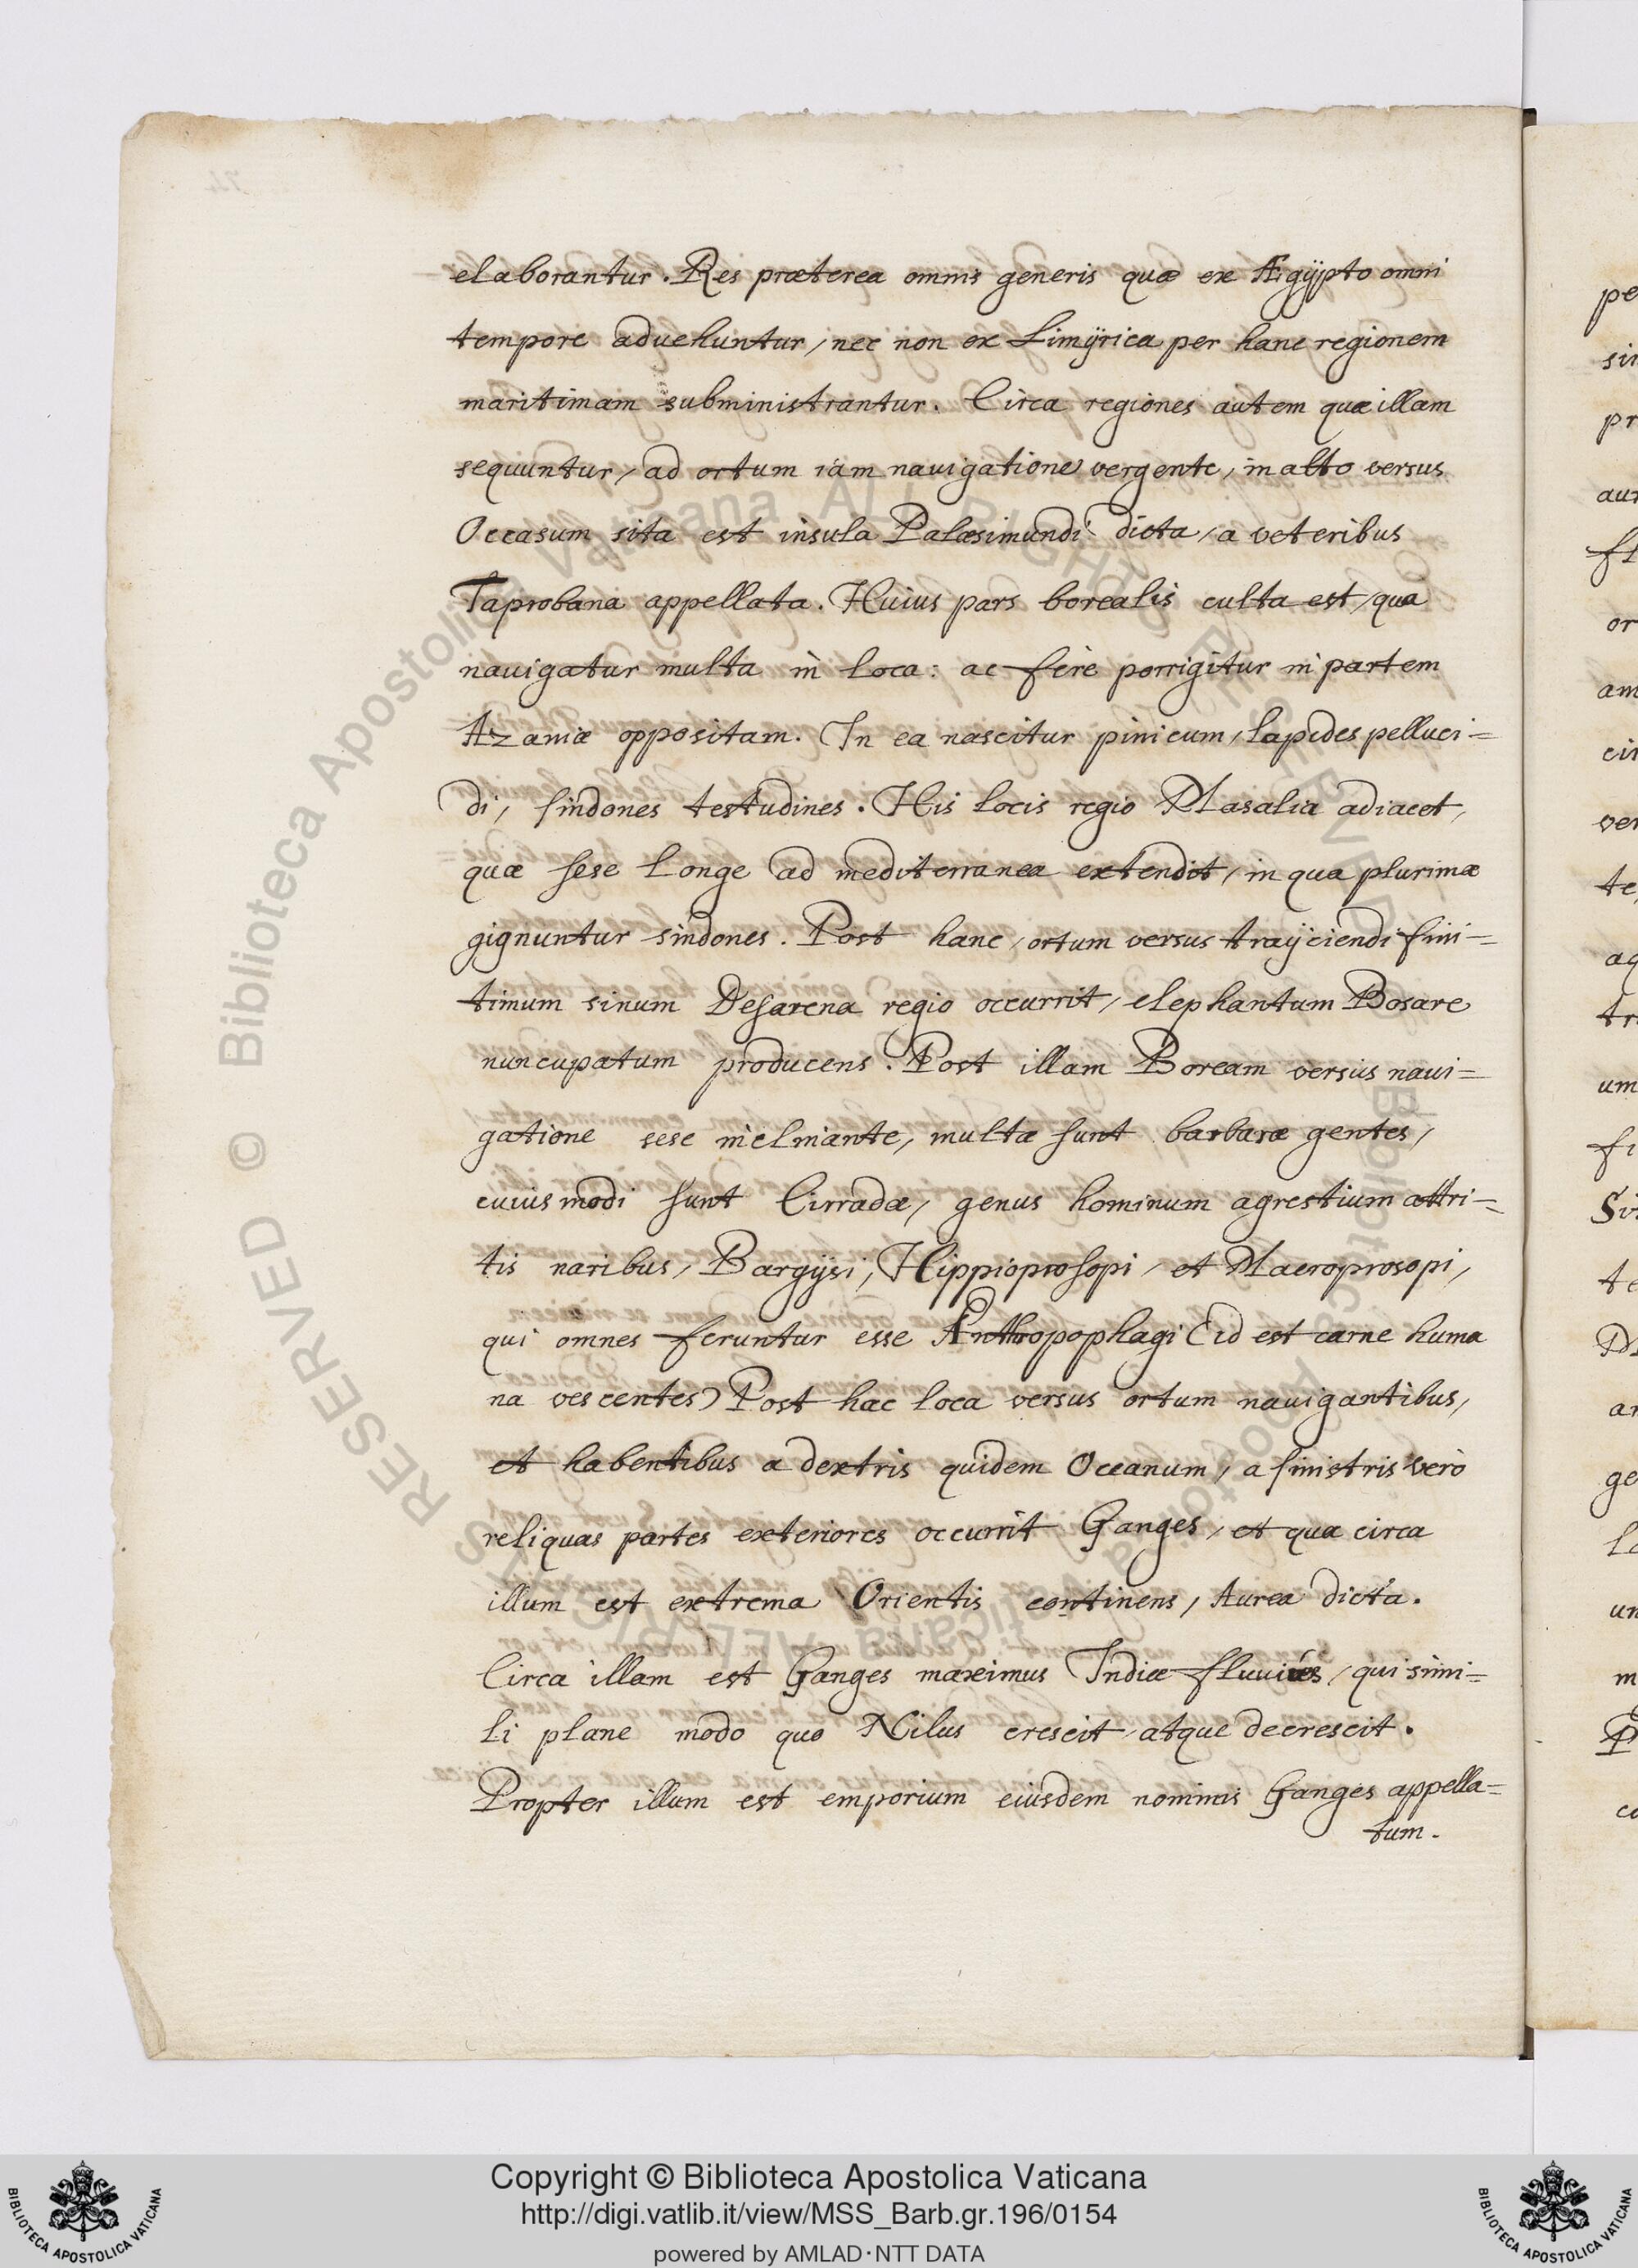 elaborantur. Res præterea omnis generis quæ ex Ægÿpto omni
tempore aduehuntur, nec non ex Limÿrica per hanc regionem
maritimam subministrantur. Circa regiones autem quæ illam
sequuntur, ad ortum iam nauigatione vergente, in alto versus
Occasum sita est insula Palæsimundi dicta, a veteribus
Taprobana appellata. Huius pars borealis culta est, qua
nauigatur multa in loca: ac fere porrigitur in partem
Azaniæ oppositam. In ea nascitur pinicum, lapides pelluci=
di, sindones testudines. His locis regio Masalia adiacet,
quæ sese longe ad mediterranea extendit, in qua plurimæ
gignuntur sindones. Post hanc, ortum versus traÿciendi fini=
timum sinum Desarena regio occurrit, elephantum Bosare
nuncupatum producens. Post illam Boream versus naui=
gatione sese inclinante, multæ sunt barbaræ gentes,
cuiusmodi sunt Cirradæ, genus hominum agrestium attri=
tis naribus, Bargÿsi, Hippioprosopi, et Macroprosopi,
qui omnes feruntur esse Anthropophagi (id est carne huma
na vescentes) Post hac loca versus ortum nauigantibus,
et habentibus a dextris quidem Oceanum, a sinistris verò
reliquas partes exteriores occurrit Ganges, et qua circa
illum est extrema Orientis continens, Aurea dicta.
Circa illam est Ganges maximus Indiæ fluuius, qui simi=
li plane modo quo Nilus crescit, atque decrescit.
Propter illum est emporium eiusdem nominis Ganges appella=
tum.
Copyright © Biblioteca Apostolica Vaticana
http://digi.vatlib.it/view/MSS_Barb.gr.196/0154
powered by AMLAD·NTT DATA